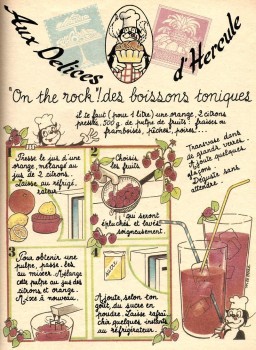 Aux Délices
d'Hercule
"On the rock"! des boissons toniques
il te faut (pour 1 litre) une orange, 2 citrons
pressés, 500 g. de pulpe de fruits : fraises ou
framboises, pêches, poires...
1
Presse le jus d'une
orange, mélange
au jus de 2 citrons.
Laisse au réfrigé
rateur.
2
Choisis
les fruits
qui seront
épluchés et lavés
soigneusement.
3
Pour obtenir une
pulpe, passe les
au mixer. Mélange
cette pulpe au jus des
citrons et orange.
Mixe à nouveau.
4
Ajoute, selon ton
goût, du sucre en
poudre. Laisse rafraî
chir quelques instants
au réfrigérateur.
Transvase dans
de grands verres.
Ajoute quelques
glaçons.
Déguste sans
attendre.